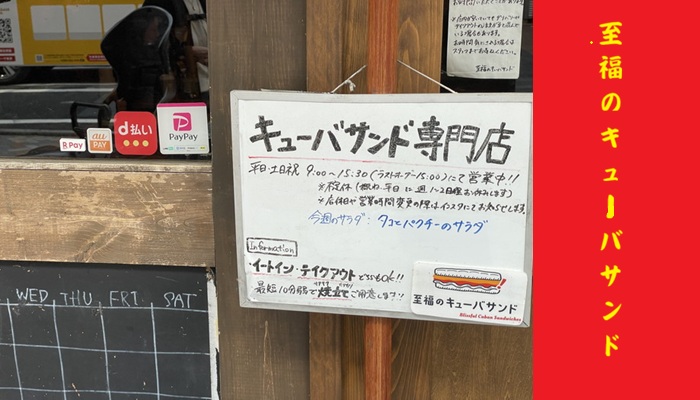 B Pay
au
PAY
d払い
PayPay
WED THU FRI. SAT
至福のキューバサンド
キューバサンド専門店
平日・土日祝 9:00〜15:30(ラストオーダー15:00)にて営業中!!
※店休日や営業時間変更の際はインスタにてお知らせします。
今週のサラダ:タコとパクチーのサラダ
Information
・イートイン・テイクアウトどちらもOK!!
最短10分程で焼立てご用意します!!
至福のキューバサンド
Blissful Cuban Sandwiches
至福のキューバサンド